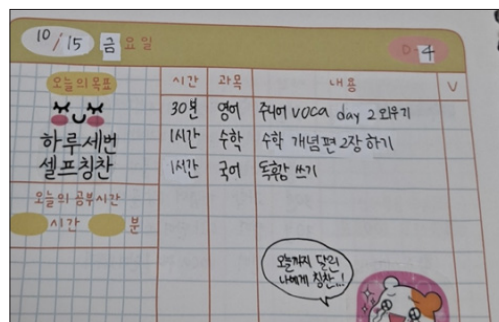 10/15 금요일
D-4
오늘의 목표
하루세번
셀프칭찬
오늘의 공부시간
시간 분
시간 과목 내용 V
30분 영어 주니어 voca day 2 외우기
1시간 수학 수학 개념편 2장 하기
1시간 국어 독후감 쓰기
오늘까지 달린
나에게 칭찬..!